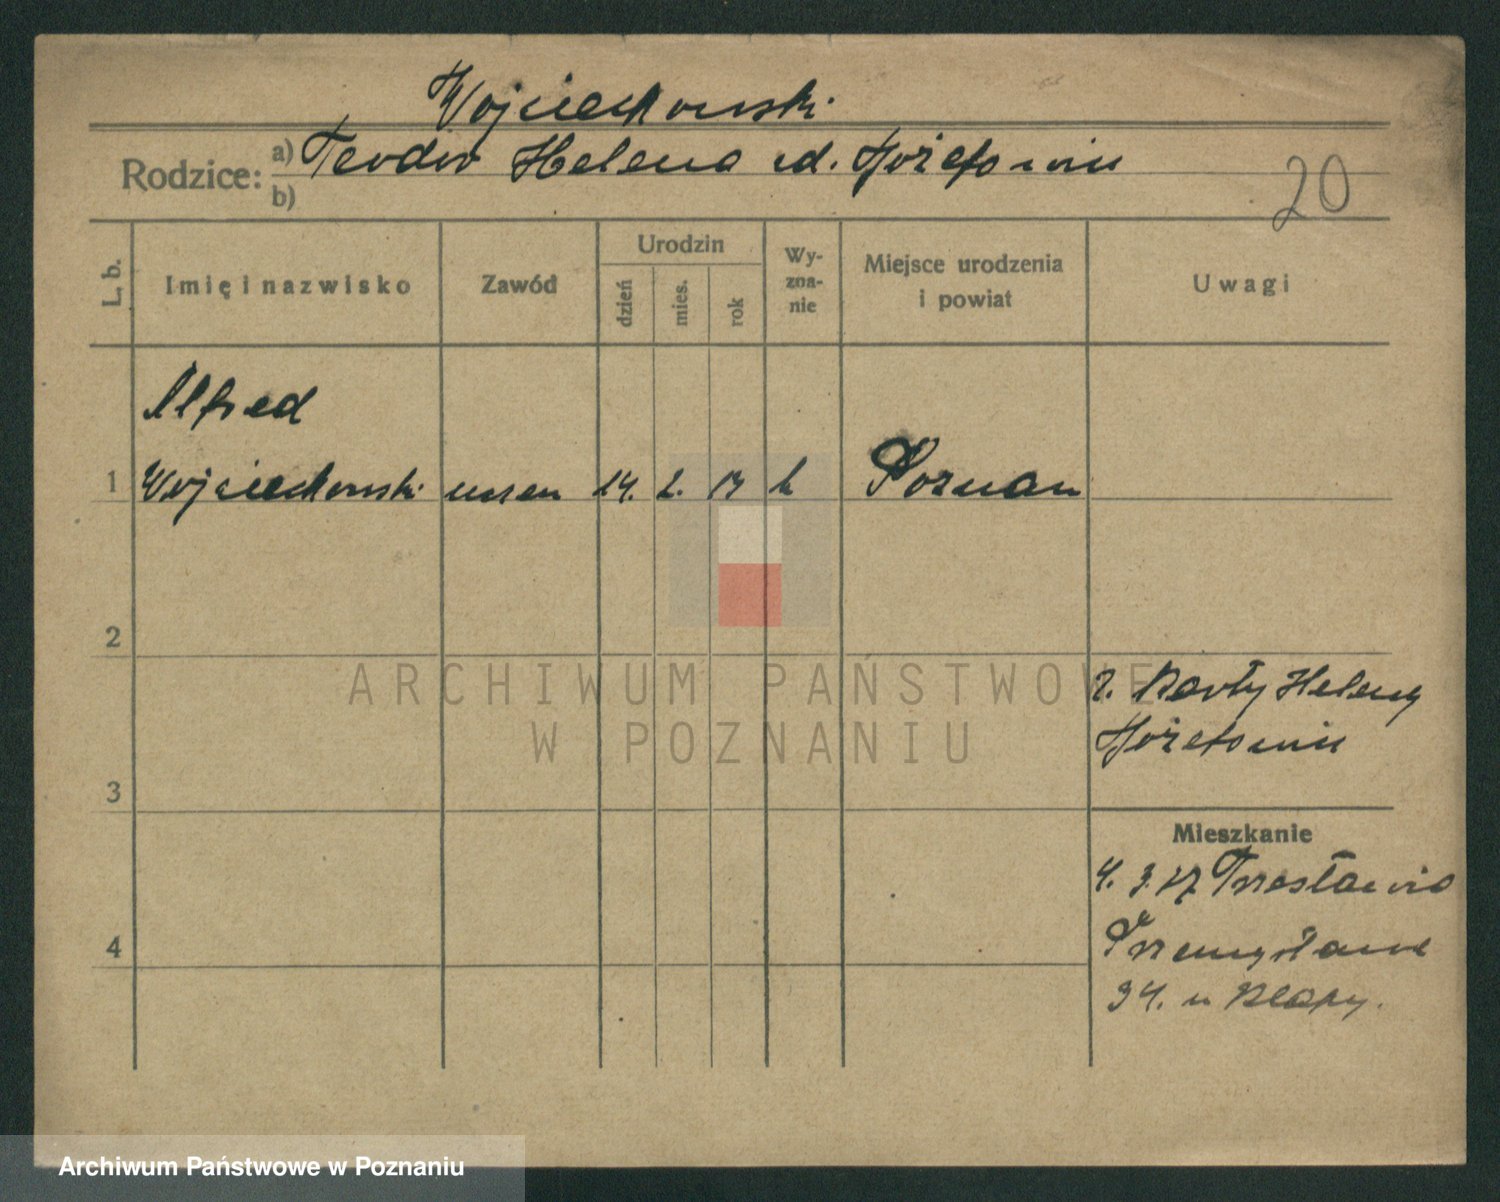 Wojciechowski
Rodzice: a) Teodor Helena zd. Józefowicz
b)
20
L. b. Imię i nazwisko Zawód Urodzin dzień mies. rok Wyznanie Miejsce urodzenia i powiat Uwagi
Alfred
1 Wojciechowski uczeń 14. 2. k Poznań
2
Heleny
Józefowicz
3
Mieszkanie
4. 3. Przesława
4 Przemysława
34. u
ARCHIWUM PAŃSTWOWE
W POZNANIU
Archiwum Państwowe w Poznaniu